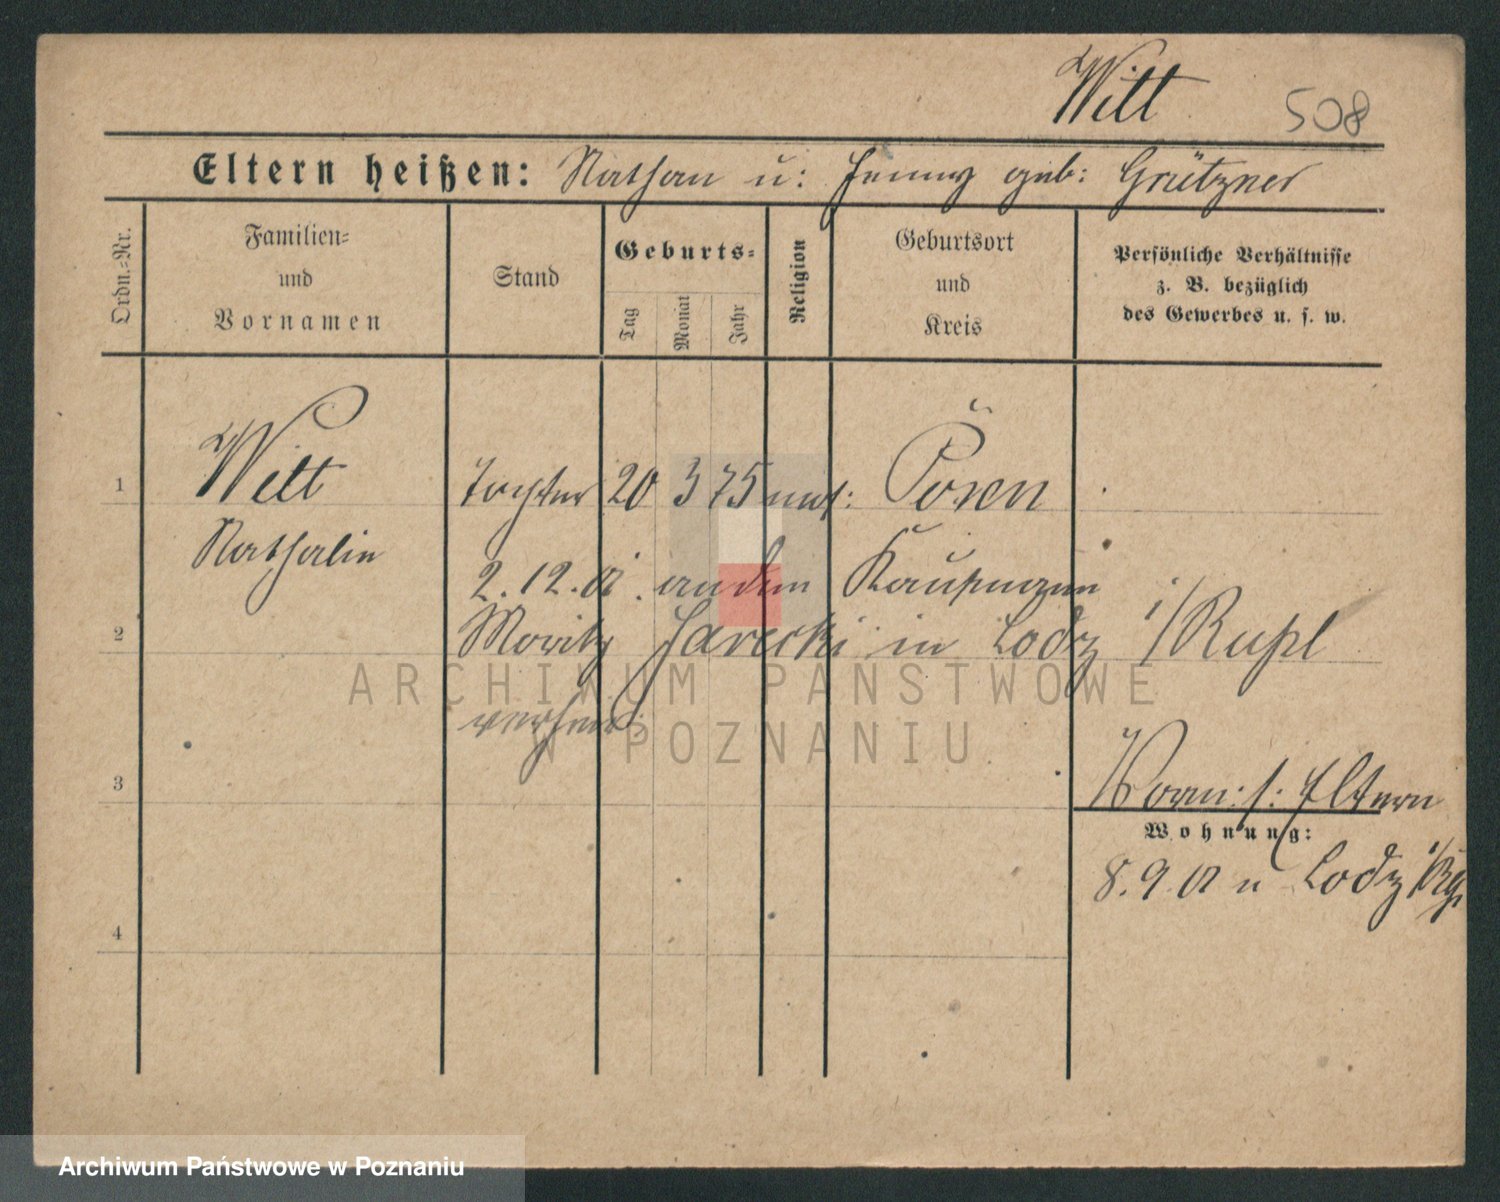 Witt
508
Eltern heißen: Nathan u: Jenny geb: Grützner
Ordn.=Nr.
Familien= und Vornamen
Stand
Geburts=
Tag
Monat
Jahr
Religion
Geburtsort und Kreis
Persönliche Verhältnisse
z. B. bezüglich
des Gewerbes u. s. w.
1 Witt Tochter 20 3 75 mos: Posen
Nathalie
2.12.01. an den Kaufmann
2 Moritz Jarecki in Lodz i/Rußl
verh
ARCHIWUM PAŃSTWOWE
W POZNANIU
3
Vorm: s: Eltern
Wohnung:
8.9.01 n Lodz
4
Archiwum Państwowe w Poznaniu